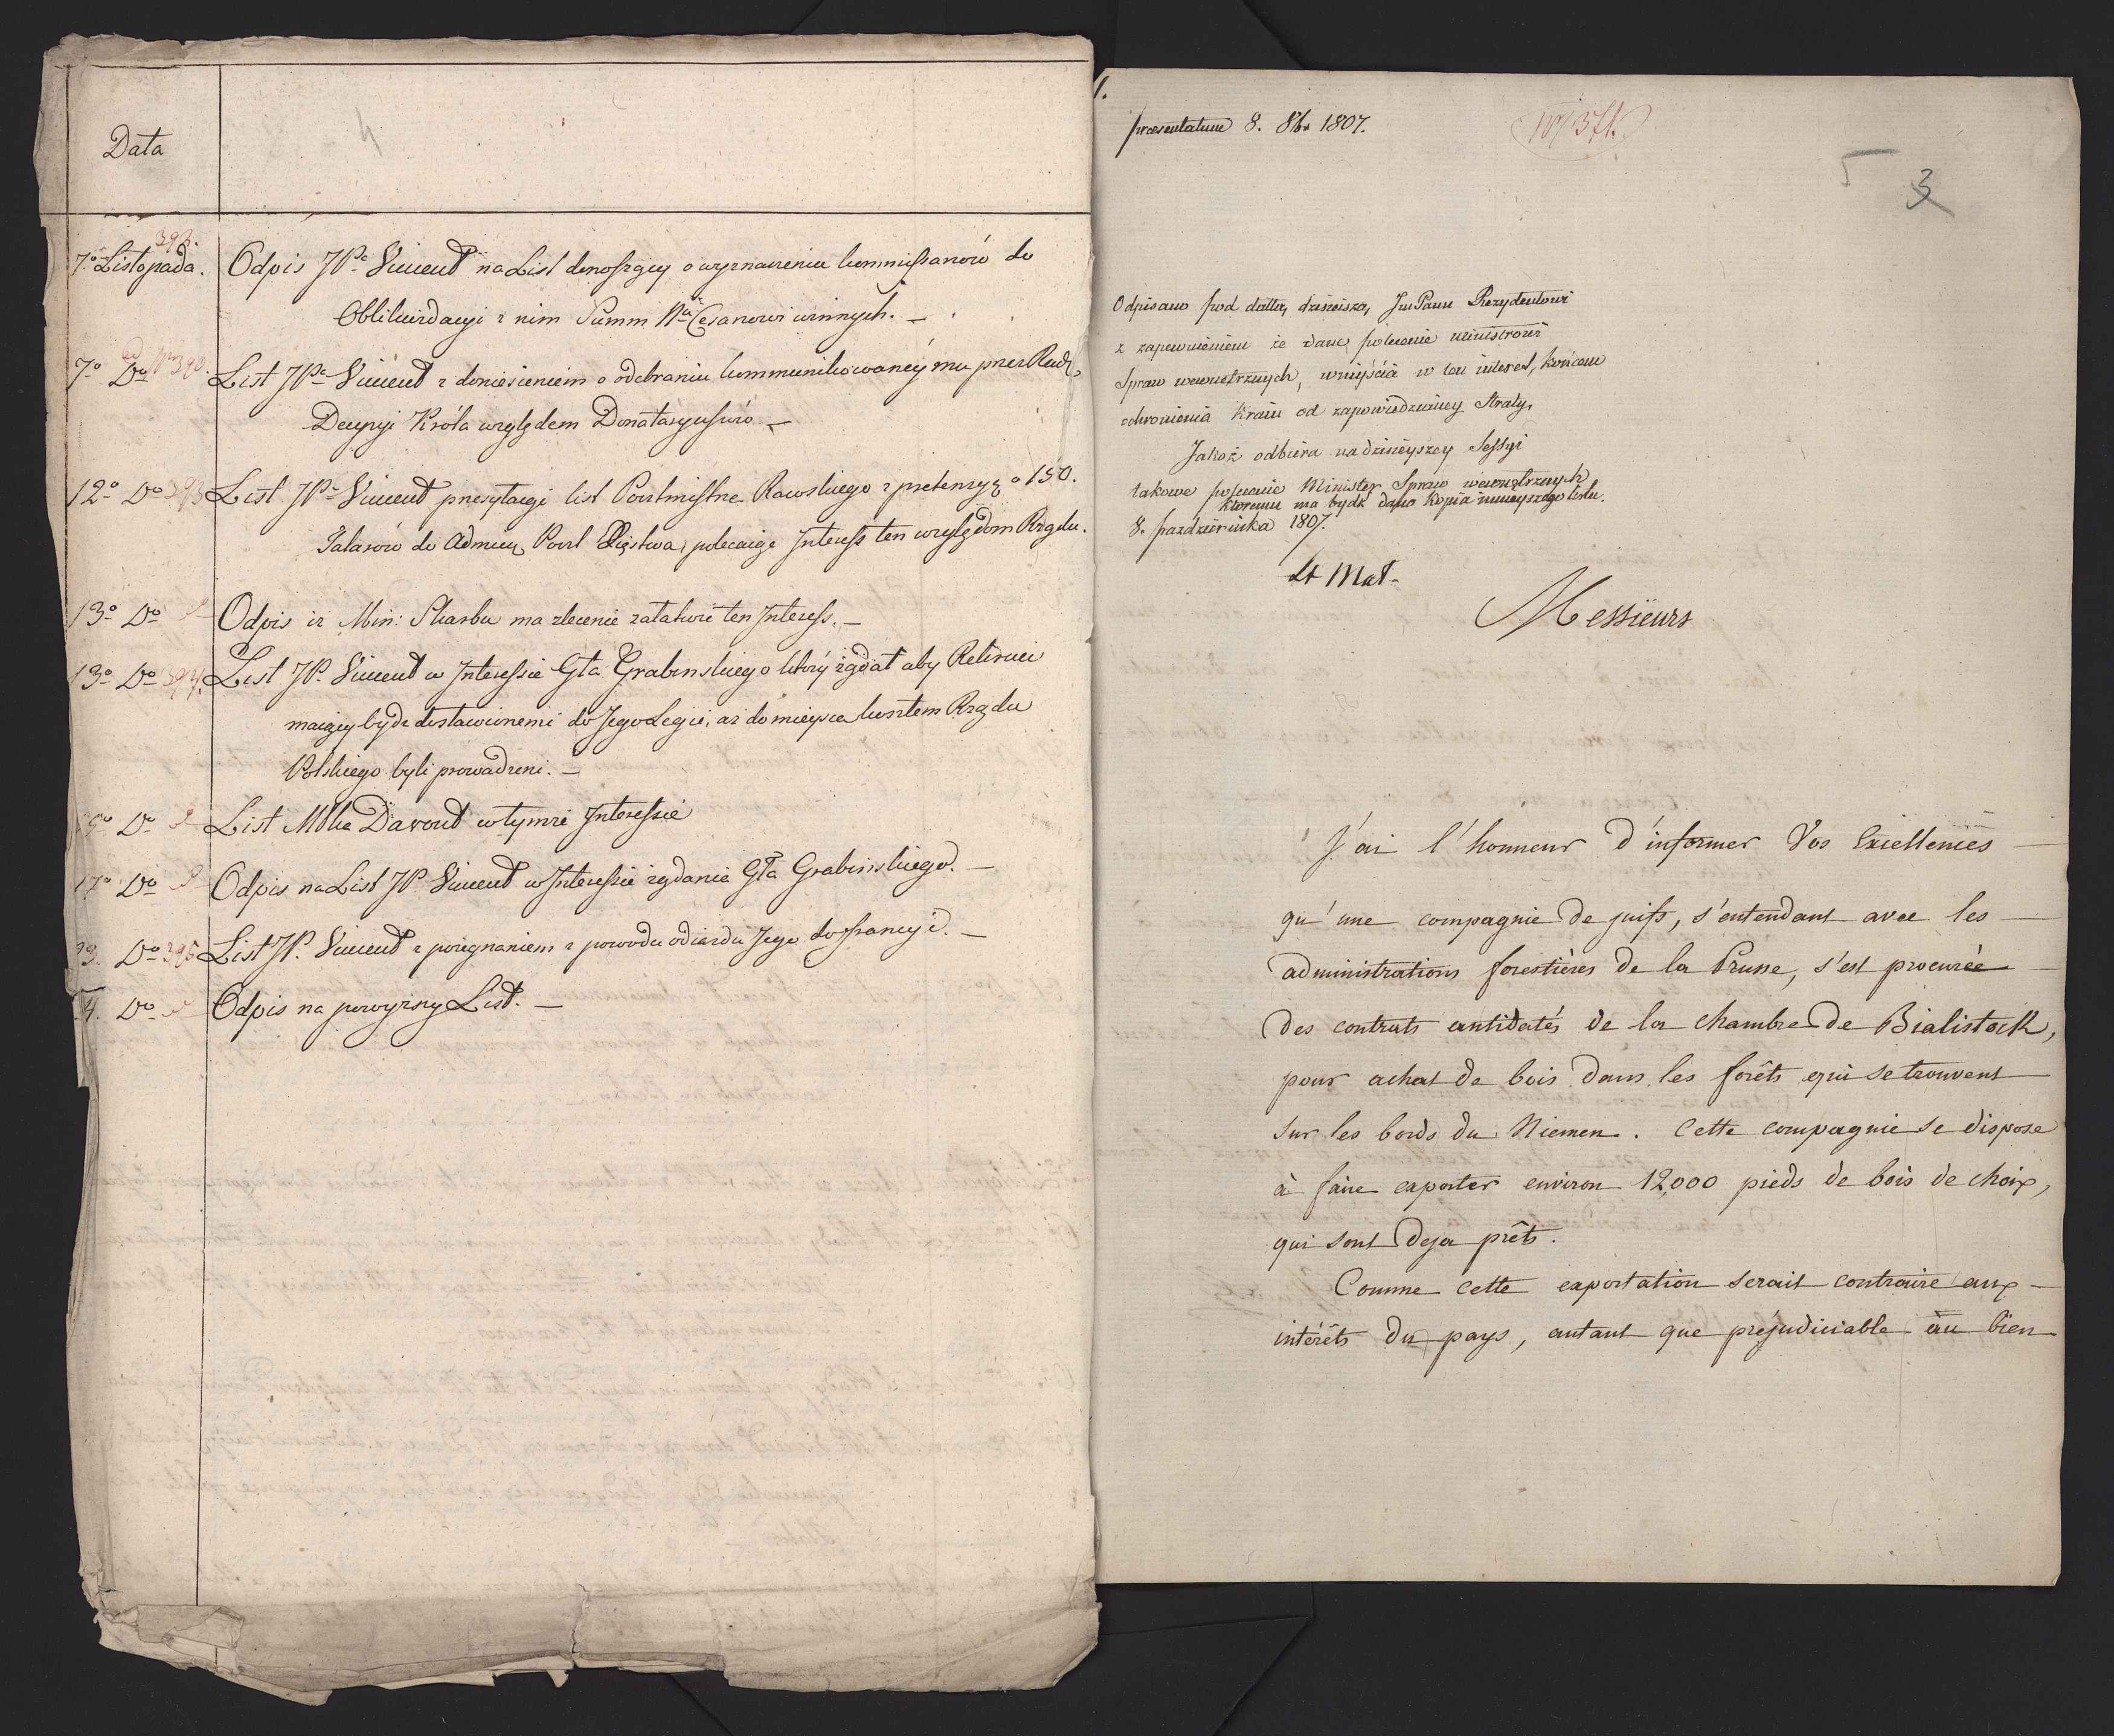 Data
4
393.
7º Listopada. Odpis JPª Vincent na List donoszący o wyznaczeniu kommissarzów do
Oblikwidacyi z nim Summ Nª Cesarzowi winnych. —
ad Nrm 390.
7º Dº List JPª Vincent z doniesieniem o odebraniu kommunikowaney mu przez Radę
Decyzyi Króla względem Donataryuszów —
12º Dº 393 List JPª Vincent przesyłaiąc list Pocztmistrza Rawskiego z pretensyą o 150.
Talarów do Admcyi Poczt Xięstwa, polecaiąc Interess ten względom Rządu.
13º Dº Odpis iż Min: Skarbu ma zlecenie załatwić ten Interess. —
13º Dº 394. List JP. Vincent w Interessie Gła Grabinskiego który żądał aby Rekruci
maiący bydź dostawionemi do Jego Legii, aż do mieysca kosztem Rządu
Polskiego byli prowadzeni. —
15º Dº List Młka Davout w tymże Interessie
17º Dº Odpis na List JP Vincent w Interessie żądania Gła Grabinskiego. —
23. Dº 395 List JP. Vincent z pożegnaniem z powodu odiazdu Jego do Francyi. —
4. Dº Odpis na powyższy List. —
1.
praesentatum 8. 8br 1807.
5 3
Odpisano pod dattą dzisieiszą, Jm Panu Prezydentowi
z zapewnieniem że dane polecenie ministrowi
Spraw wewnetrznych, wniyścia w ten interes, końcem
ochronienia Kraiu od zapowiedzianey straty,
Jakoż odbiera na dzisieyszey Sessyi
takowe polecenie Minister Spraw wewnętrznych
ktoremu ma bydź dana kopia ninieyszego listu.
8. pazdziernika 1807.
St Mał.
Messieurs
J'ai l'honneur d'informer Vos Excellences
qu'une compagnie de juifs, s'entendant avec les
administrations forestières de la Prusse, s'est procurée
des contrats antidatés de la chambre de Bialistock,
pour achat de bois dans les forêts qui se trouvent
sur les bords du Niemen. Cette compagnie se dispose
à faire exporter environ 12,000 pieds de bois de choix,
qui sont deja prêts.
Comme cette exportation serait contraire aux
intérêts du pays, autant que préjudiciable au bien